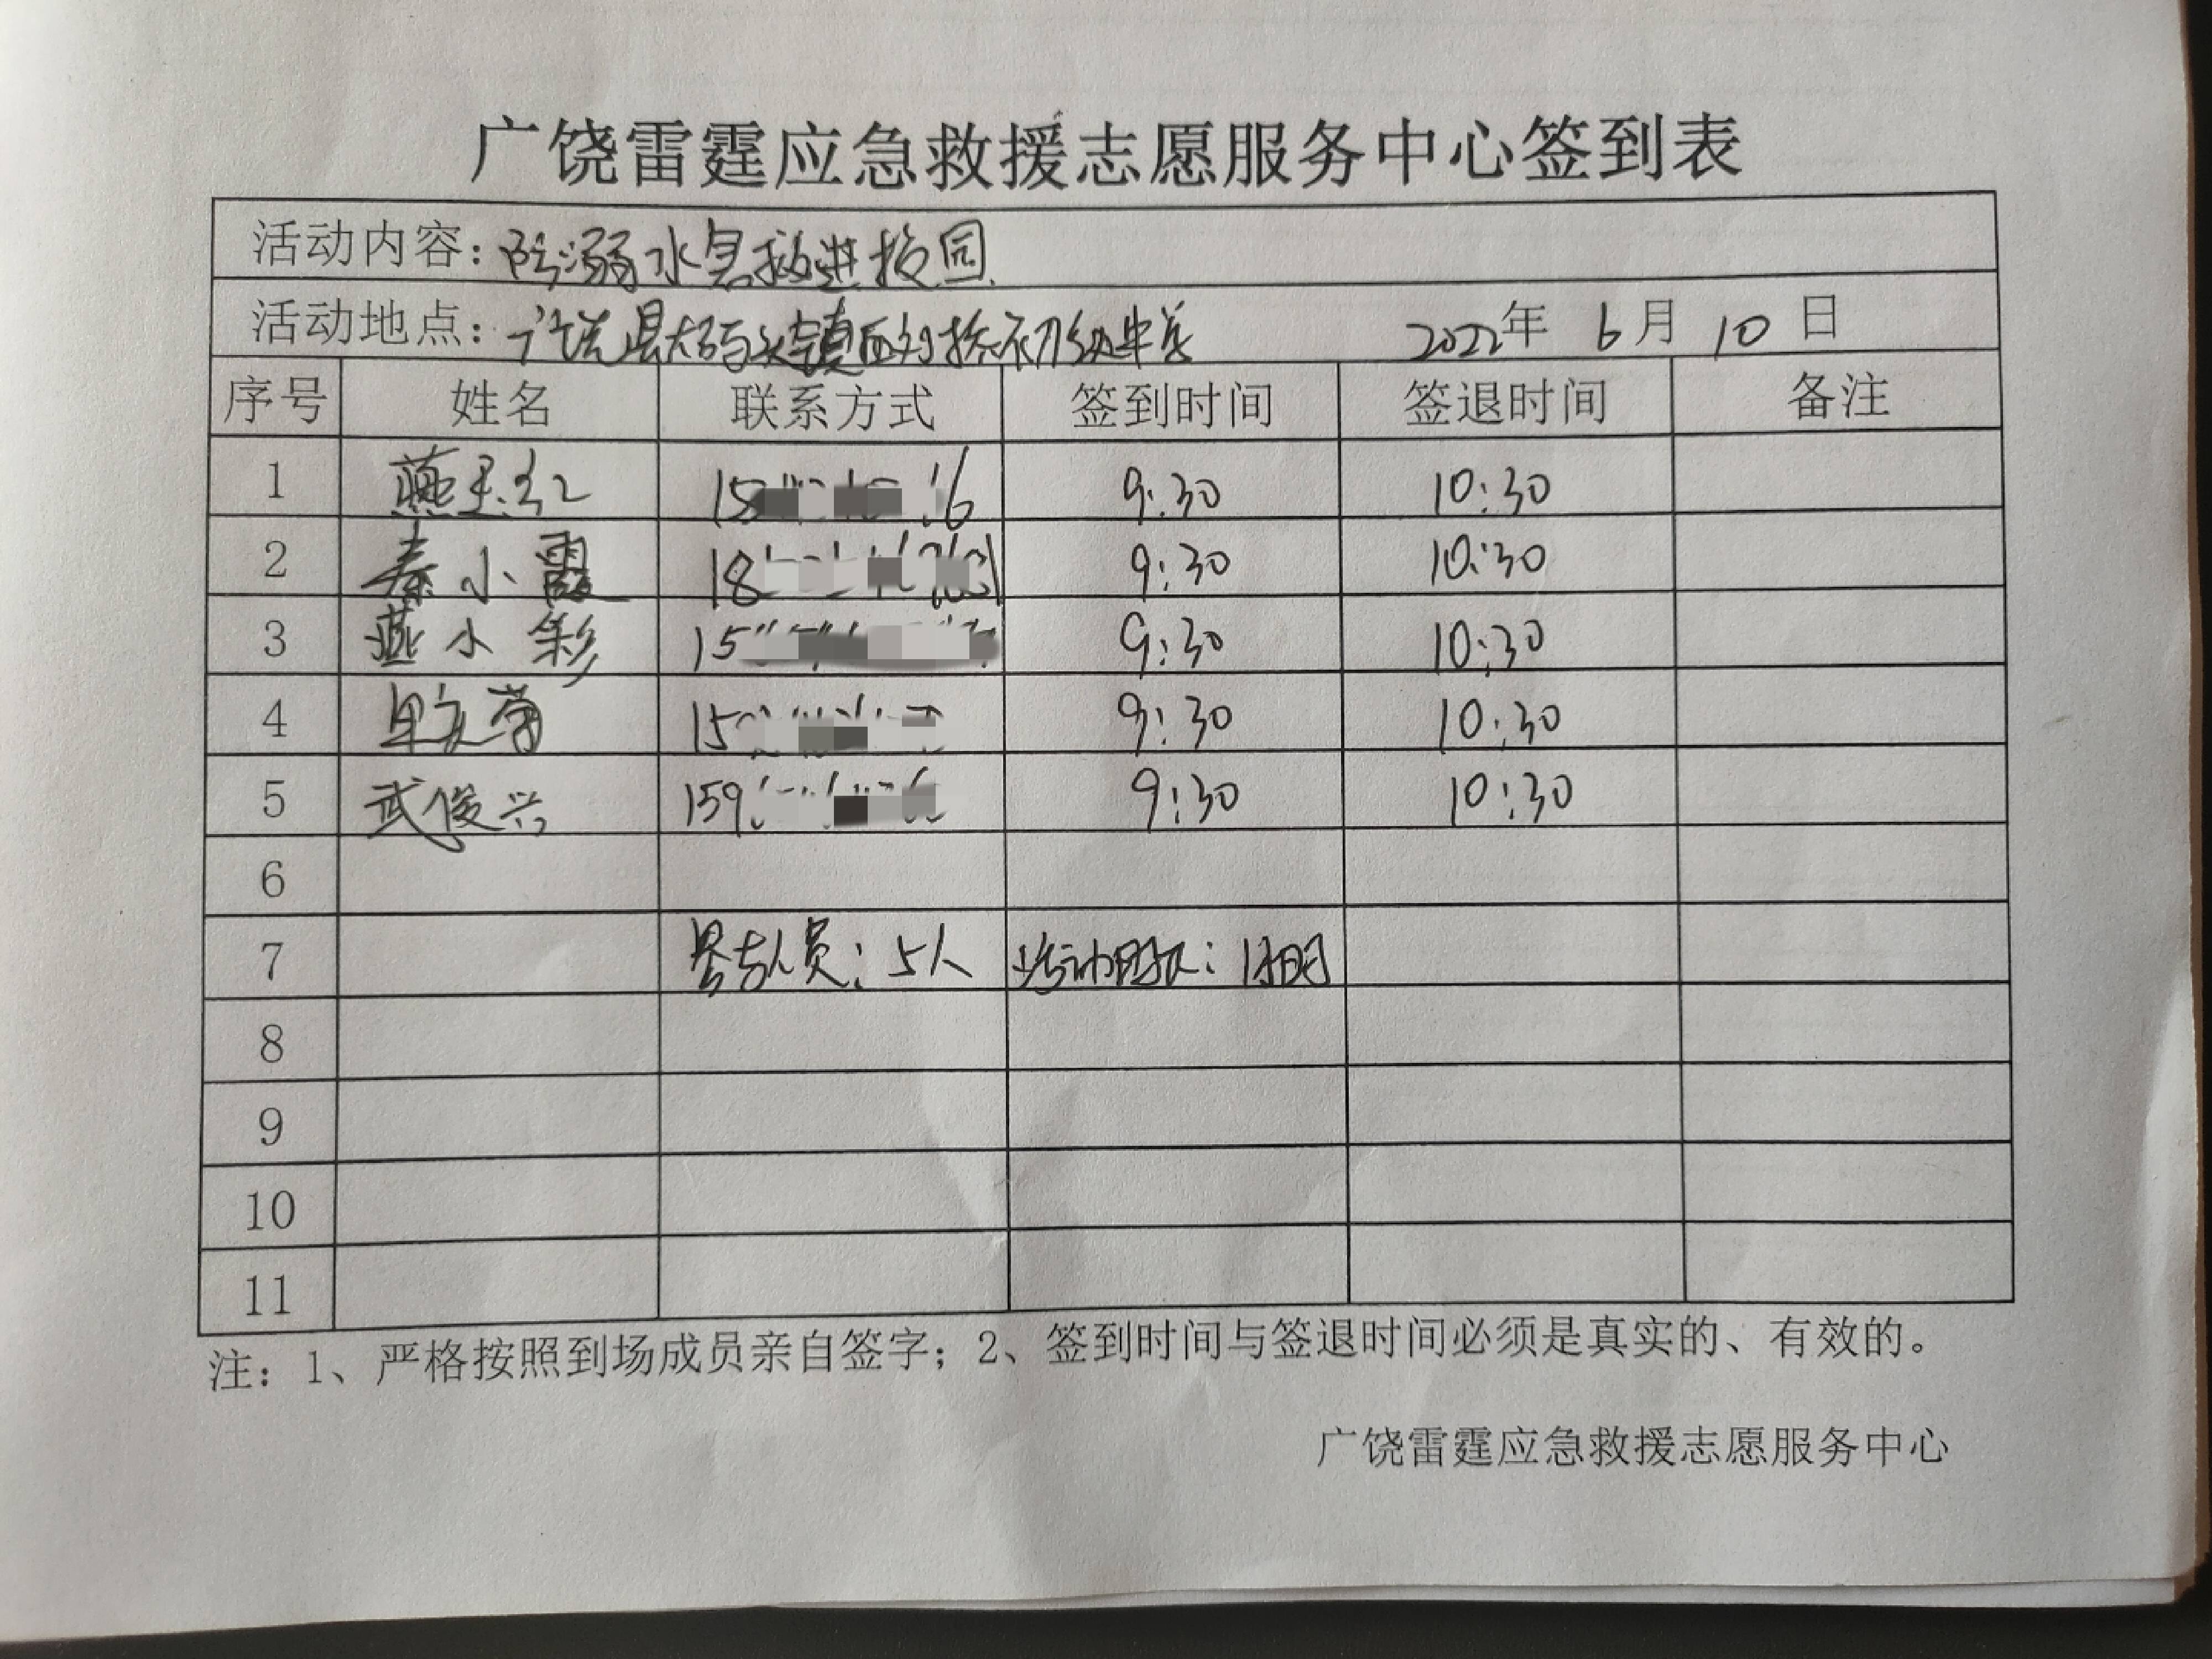 广饶雷霆应急救援志愿服务中心签到表
活动内容：防溺水急救进校园
活动地点：广饶县大码头镇西刘桥初级中学 2022年 6月 10日
序号 姓名 联系方式 签到时间 签退时间 备注
1 燕玉红 15 16 9:30 10:30
2 秦小霞 18 9:30 10:30
3 燕小彩 15 9:30 10:30
4 15 9:30 10:30
5 武俊兴 159 9:30 10:30
6
7 参与人员：5人 活动时长：1小时
8
9
10
11
注：1、严格按照到场成员亲自签字；2、签到时间与签退时间必须是真实的、有效的。
广饶雷霆应急救援志愿服务中心